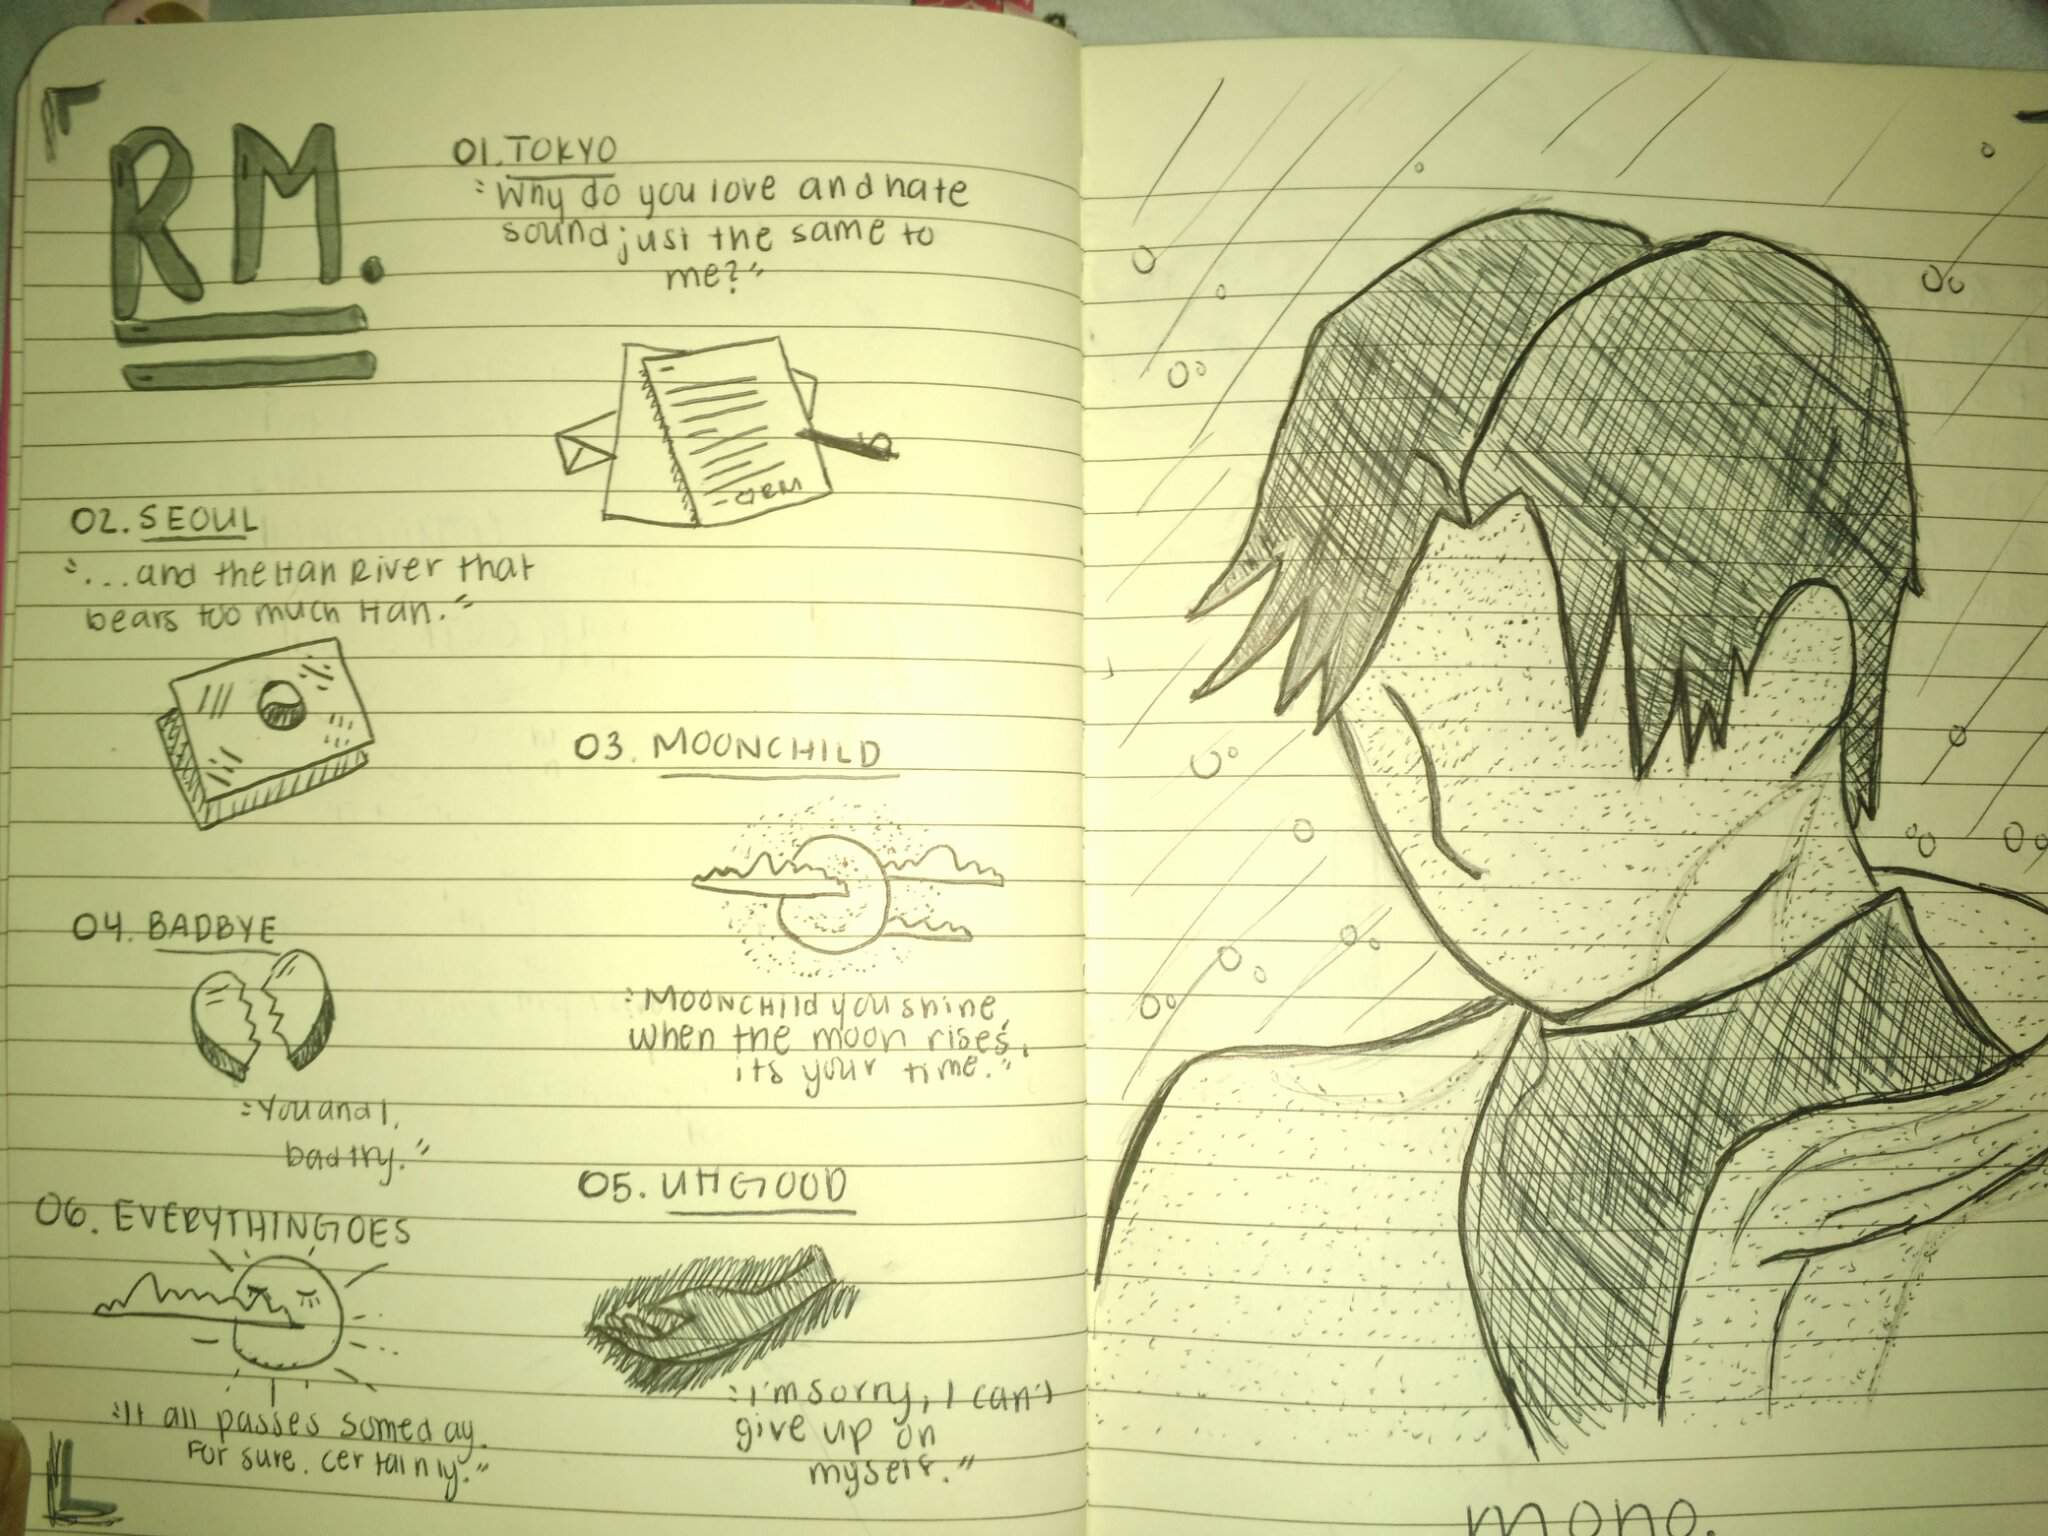 RM.
01. TOKYO
"Why do you love and hate
sound just the same to
me?"
02. SEOUL
"...and the Han River that
bears too much Han."
03. MOONCHILD
"Moonchild you shine,
when the moon rises,
its your time."
04. BADBYE
"You and I,
bad try."
05. UHGOOD
"I'm sorry, I can't
give up on
myself."
06. EVERYTHINGOES
"It all passes someday.
For sure. certainly."
mono.